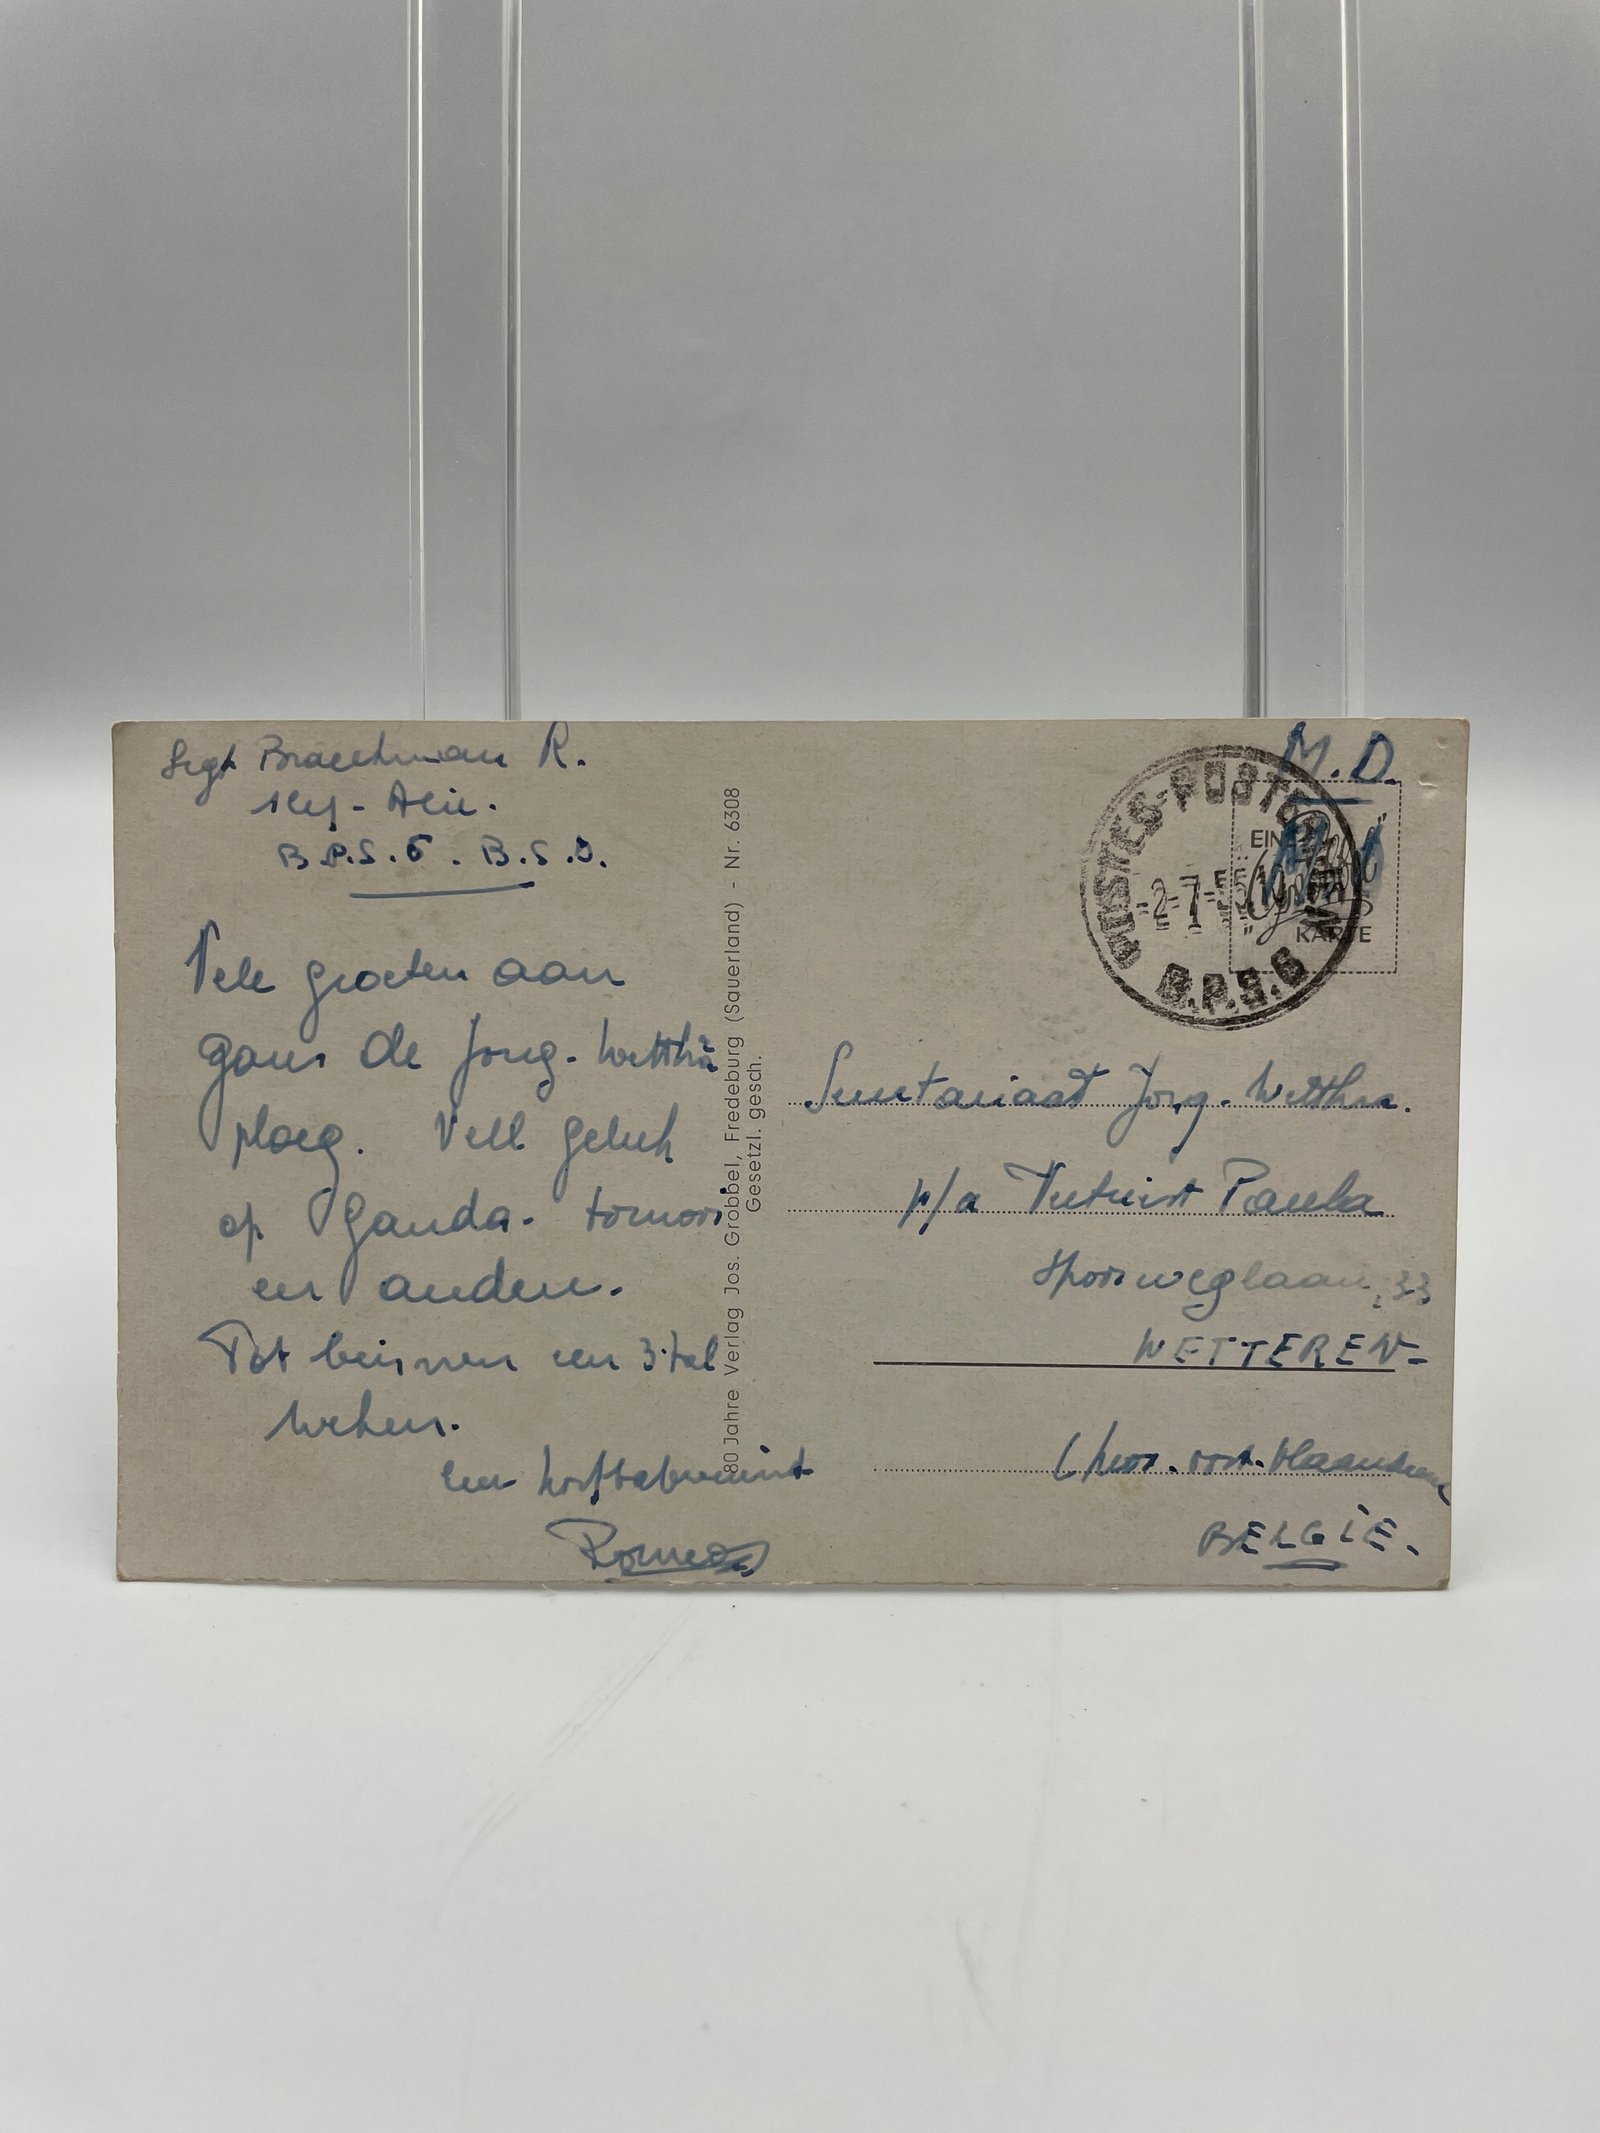 Sgt Braeckman R.
B.P.S. 6. B.S.D.
Vele groeten aan
gans de Jong-
ploeg. Veel geluk
op Ganda- tornooi
en andere.
Tot binnen een 3-tal
weken.
een
Romeo
80 Jahre Verlag Jos. Grobbel, Fredeburg (Sauerland) - Nr. 6308
Gesetzl. gesch.
M.D.
POSTES-POSTERIJEN
-2-7-55
B.P.S.6
EINE
KARTE
Secretariaat Jong-
p/a Paula
Spoorweglaan, 33
WETTEREN-
(Prov. Oost-Vlaanderen
BELGIË.